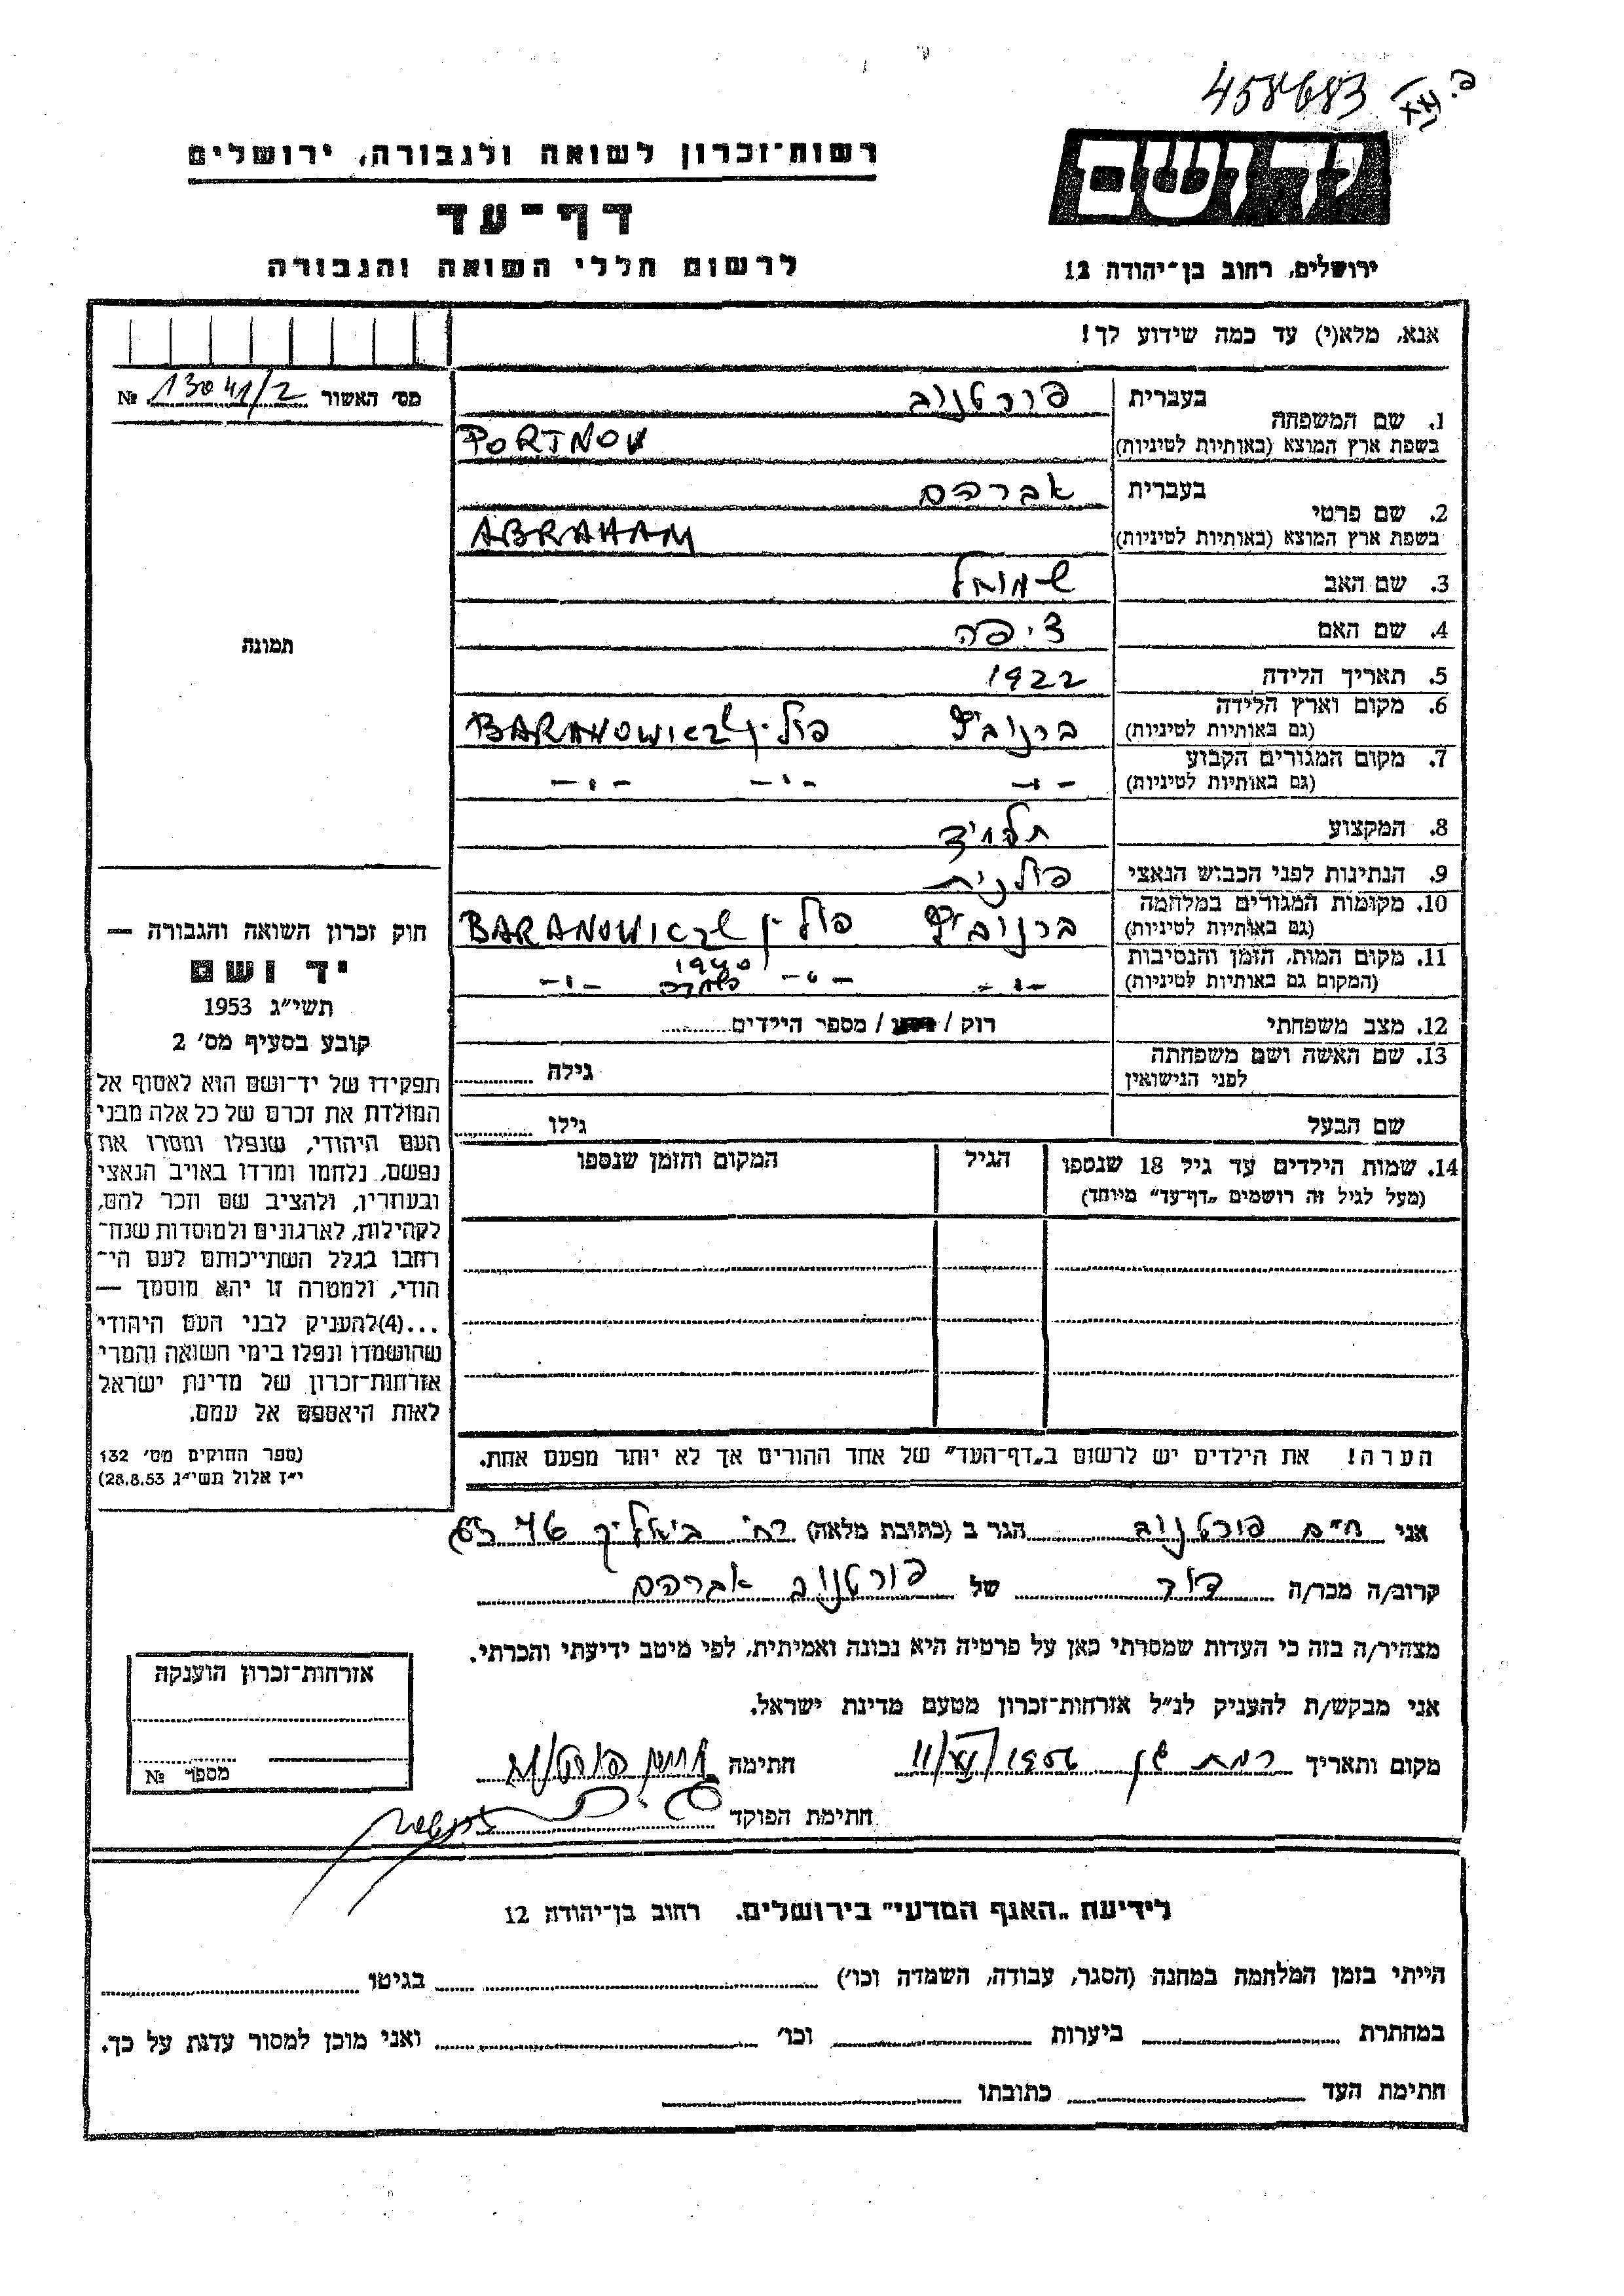 458683
רשות־זכרון לשואה ולגבורה, ירושלים
יד ושם
דף־עד
לרשום חללי השואה והגבורה
ירושלים, רחוב בן־יהודה 12
אנא, מלא(י) עד כמה שידוע לך!
מס׳ האשור 13041/2 №
1. שם המשפחה
בעברית פורטנוב
בשפת ארץ המוצא (באותיות לטיניות) PORTNOV
2. שם פרטי
בעברית אברהם
בשפת ארץ המוצא (באותיות לטיניות) ABRAHAM
3. שם האב שמואל
4. שם האם ציפה
5. תאריך הלידה 1922
6. מקום וארץ הלידה
(גם באותיות לטיניות) ברנוביץ פולין BARANOWI
7. מקום המגורים הקבוע
(גם באותיות לטיניות) -"- -"- -"-
8. המקצוע תלמיד
9. הנתינות לפני הכבוש הנאצי פולנית
10. מקומות המגורים במלחמה
(גם באותיות לטיניות) ברנוביץ פולין BARANOWI
11. מקום המות, הזמן והנסיבות
(המקום גם באותיות לטיניות) -"- -"- 1940 -"-
12. מצב משפחתי רוק / / מספר הילדים
13. שם האשה ושם משפחתה
לפני הנישואין
גילה
שם הבעל גילו
14. שמות הילדים עד גיל 18 שנספו הגיל המקום והזמן שנספו
(מעל לגיל זה רושמים „דף־עד" מיוחד)
הערה! את הילדים יש לרשום ב„דף־העד" של אחד ההורים אך לא יותר מפעם אחת.
תמונה
חוק זכרון השואה והגבורה —
יד ושם
תשי״ג 1953
קובע בסעיף מס׳ 2
תפקידו של יד־ושם הוא לאסוף אל
המולדת את זכרם של כל אלה מבני
העם היהודי, שנפלו ומסרו את
נפשם, נלחמו ומרדו באויב הנאצי
ובעוזריו, ולהציב שם וזכר להם,
לקהילות, לארגונים ולמוסדות שנח־
רבו בגלל השתייכותם לעם הי־
הודי, ולמטרה זו יהא מוסמך —
...(4)להעניק לבני העם היהודי
שהושמדו ונפלו בימי השואה והמרי
אזרחות־זכרון של מדינת ישראל
לאות היאספם אל עמם.
(ספר החוקים מס׳ 132
י״ז אלול תשי״ג 28.8.53)
אני חיים פורטנוב הגר ב (כתובת מלאה) רח׳ ביאליק 46
קרוב/ה מכר/ה דוד של פורטנוב אברהם
מצהיר/ה בזה כי העדות שמסרתי כאן על פרטיה היא נכונה ואמיתית, לפי מיטב ידיעתי והכרתי.
אני מבקש/ת להעניק לנ״ל אזרחות־זכרון מטעם מדינת ישראל.
מקום ותאריך רמת גן 1956 חתימה
חתימת הפוקד
אזרחות־זכרון הוענקה
מספר №
לידיעת „האגף המדעי" בירושלים. רחוב בן־יהודה 12
הייתי בזמן המלחמה במחנה (הסגר, עבודה, השמדה וכו׳) בגיטו
במחתרת ביערות וכו׳ ואני מוכן למסור עדות על כך.
חתימת העד כתובתו